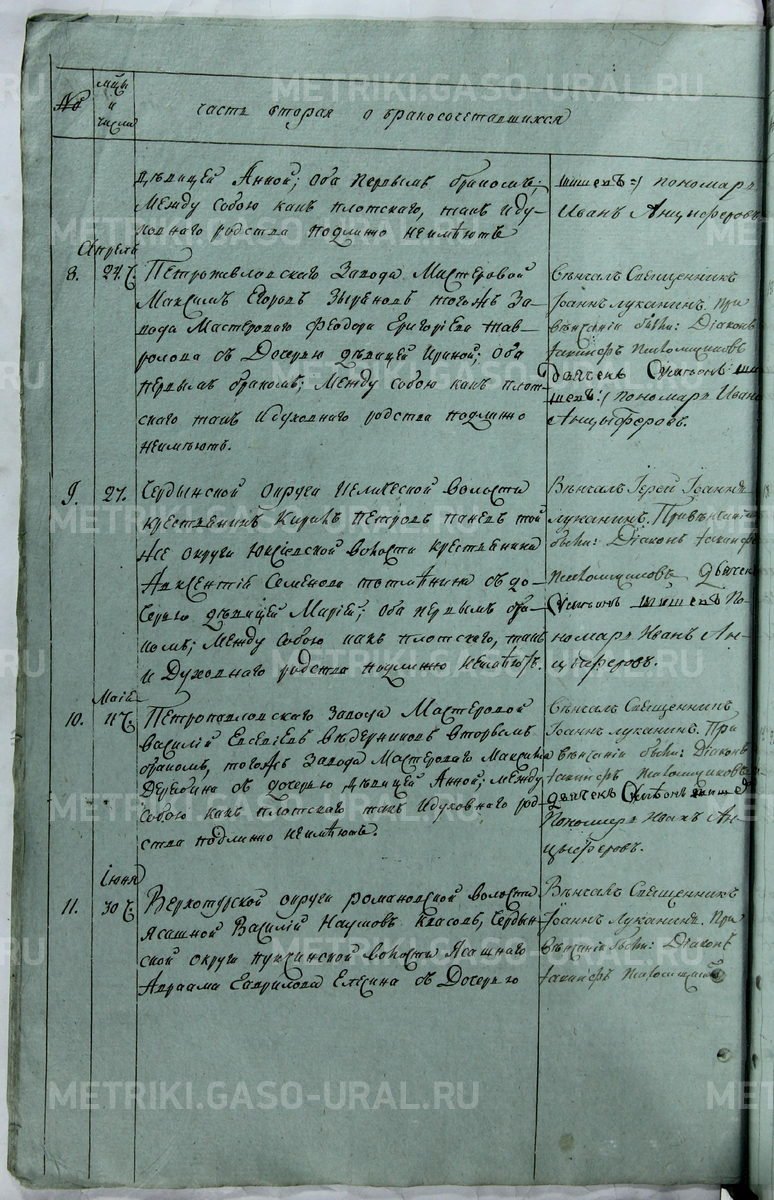 №
мцы
и
числа
часть вторая о бракосочетавшихся
девицей Анной; оба первымъ бракомъ;
Между собою какъ плотскаго, такъ иду-
ховнаго родства подлинно неимѣютъ
пономарь
Иванъ Анцыферовъ
Апрѣля
8. 27. Петропавловскаго Завода Мастеровой
Максимъ Егоровъ Зыряновъ тогожъ За-
вода Мастероваго Феодора Григорiева
съ Дочерью дѣвицей Ириной; оба
первымъ бракомъ; Между собою какъ плот-
скаго такъ идуховнаго родства подлинно
неимѣютъ.
Вѣнчалъ Священникъ
Iоаннъ Луканинъ. При
вѣнчанiи были: Дiаконъ
Iакинфъ
дьячекъ Симеонъ
пономарь Иванъ
Анцыферовъ.
9. 27. Чердынской округи волости
крестьянинъ Кирикъ Петровъ Паневъ той
же округи Юксѣевской волости крестьянина
Авксентiя Семенова съ до-
черью дѣвицей Марiей; оба первымъ бра-
комъ; Между собою какъ плотскаго, такъ
и Духовнаго родства подлинно неимѣютъ.
Вѣнчалъ Iерей Iоаннъ
Луканинъ. Привѣнчанiи
были: Дiаконъ Iакинфъ
дьячекъ
Симеонъ По-
номарь Иванъ Ан-
цыферовъ.
Маiя
10. 11 Петропавловскаго Завода Мастеровой
Василiй Евсевiевъ Ведерниковъ вторымъ
бракомъ, тогожъ Завода Мастероваго Максима
Дерябина съ дочерью Дѣвицей Анной; Между
Собою какъ плотскаго такъ идуховнаго род-
ства подлинно неимѣютъ.
Вѣнчалъ Священникъ
Iоаннъ Луканинъ. При
вѣнчанiи были: Дiаконъ
Iакинфъ
дьячекъ Симеонъ
Пономарь Иванъ Ан-
цыферовъ.
Iюня
11. 30 Верхотурской округи романовской волости
Ясашной Василiй Наумовъ Квасовъ, Чердын-
ской округи волости Ясашнаго
Авраама Гаврилова Елесина съ Дочерью
Вѣнчалъ Священникъ
Iоаннъ Луканинъ. При
вѣнчанiи были: Дiаконъ
Iакинфъ
METRIKI.GASO-URAL.RU